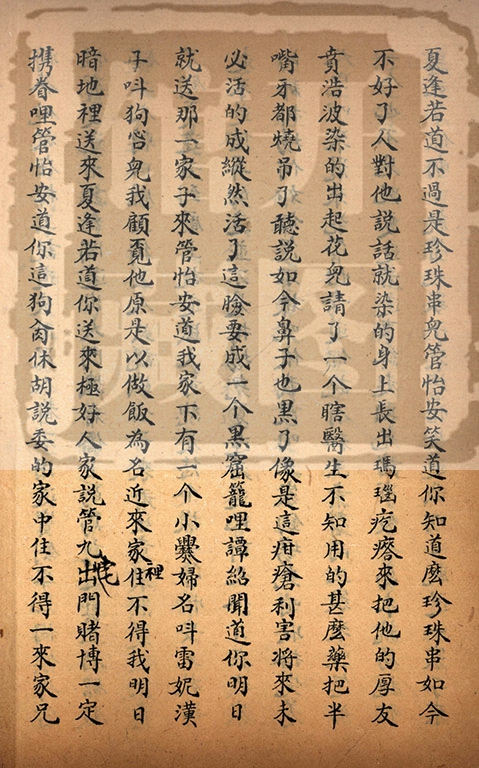 夏逢若道不過是珍珠串兒管怡安笑道你知道麽珍珠串如今
不好了人對他説話就染的身上長出瑪瑙疙瘩來把他的厚友
賁浩波染的出起花兒請了一个瞎醫生不知用的甚麽藥把半
嘴牙都燒吊了聽説如今鼻子也黑了像是這疳瘡利害將來未
必活的成縱然活了這臉要成一个黑窟籠哩譚紹聞道你明日
就送那一家子來管怡安道我家下有一个小爨婦名呌雷妮漢
子呌狗㕰兒我顧覔他原是以做飯為名近來家裡住不得我明日
暗地裡送來夏逢若道你送來極好人家説管九宅出門賭博一定
携眷哩管怡安道你這狗肏休胡説委的家中住不得一來家兄